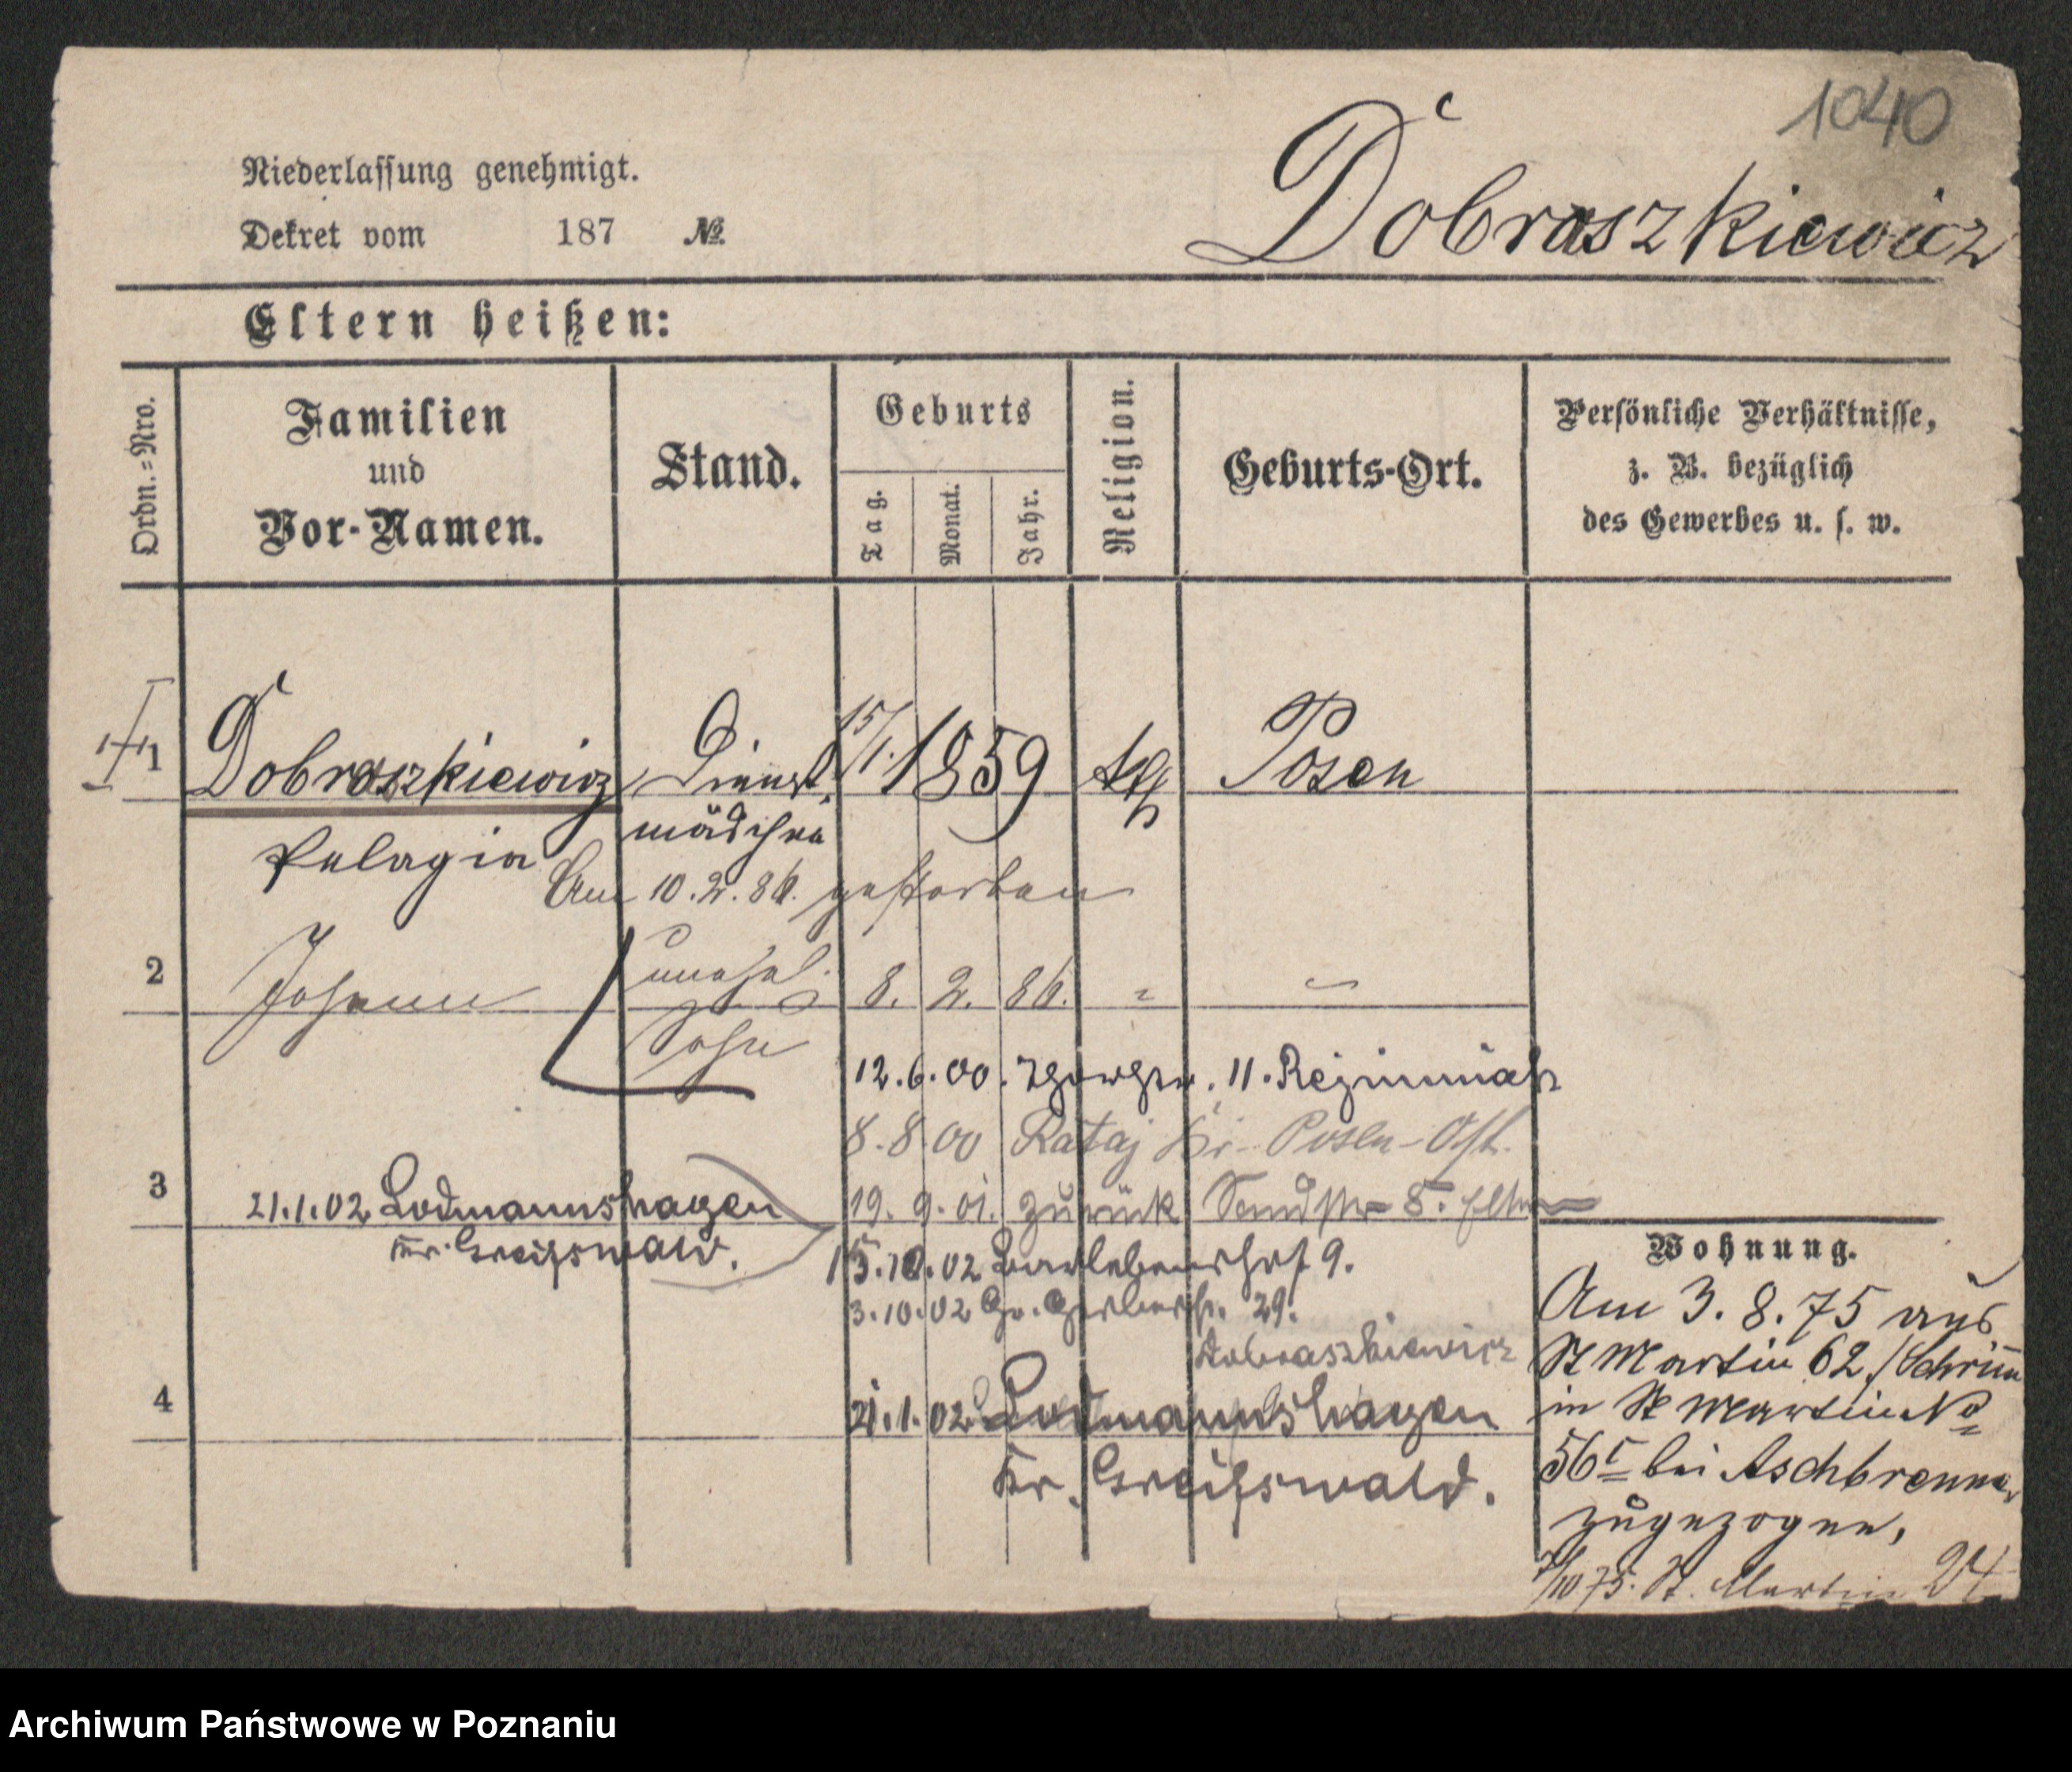 1040
Dobraszkiewicz
Niederlassung genehmigt.
Dekret vom 187 №
Eltern heißen:
Ordn.=Nro.
Familien
und
Vor-Namen.
Stand.
Geburts
Tag.
Monat.
Jahr.
Religion.
Geburts-Ort.
Persönliche Verhältnisse,
z. B. bezüglich
des Gewerbes u. s. w.
1 Dobraszkiewicz Dienst 15/1. 1859 kth Posen
Pelagia mädchen
Am 10.2.86. gestorben
2 Johann unehel. 8. 2. 86. "
Sohn
12.6.00. 11.
8.8.00 Rataj Kr. Posen-Ost.
3 21.1.02 Lodmannshagen
Kr. Greifswald.
19. 9. 01. zurück Sandstr 8.
15.10.02 9.
3.10.02 Gr. Gerberstr. 29.
Dobraszkiewicz
4 21.1.02 Lodmannshagen
Kr. Greifswald.
Wohnung.
Am 3.8.75 aus
St Martin 62./Schrim
in St Martin No
56 bei Aschbrenner
zugezogen,
/10 75. St. Martin 24
Archiwum Państwowe w Poznaniu